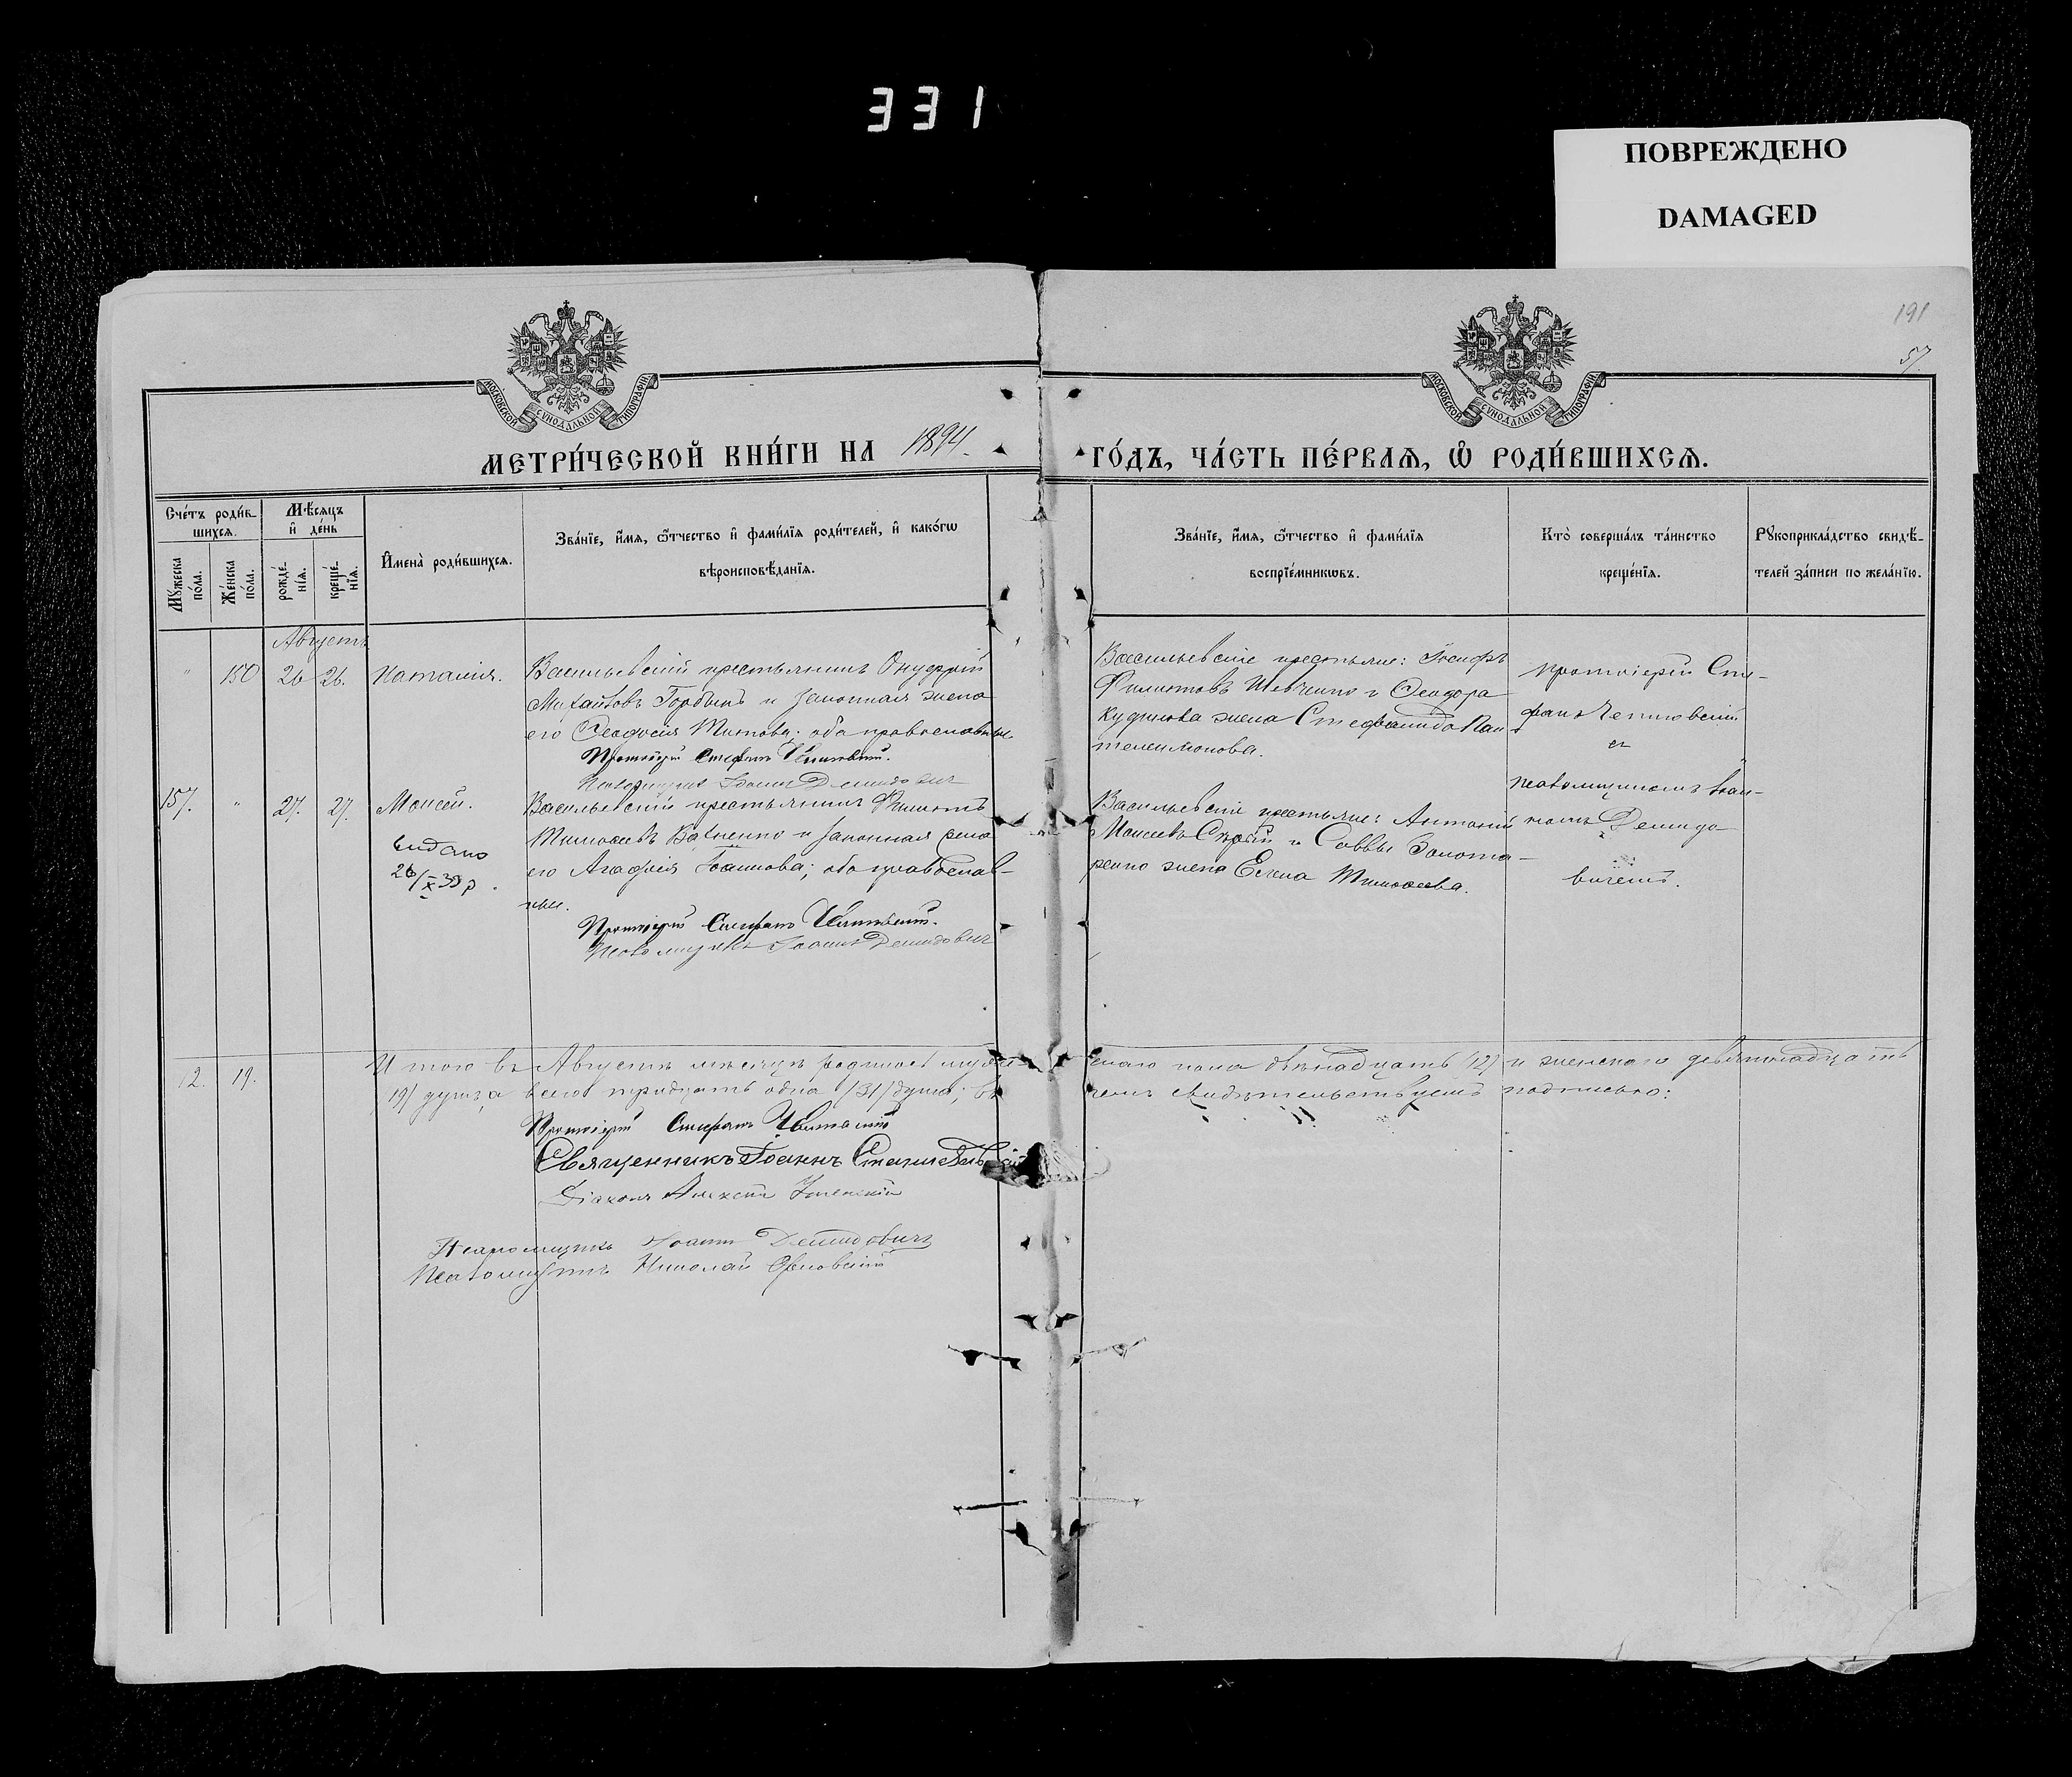 331
ПОВРЕЖДЕНО
DAMAGED
191
57
МОСКОВСКОЙ СѴНОДАЛЬНОЙ ТИПОГРАФІИ.
МОСКОВСКОЙ СѴНОДАЛЬНОЙ ТИПОГРАФІИ.
МЕТРИ́ЧЕСКОЙ КНИ́ГИ НА 1894.
ГО́ДЪ, ЧА́СТЬ ПЕ́РВАЯ, Ѡ҆ РОДИ́ВШИХСЯ.
Сче́тъ роди́в-
шихся.
Мꙋ́жеска по́ла.
Же́нска по́ла.
Мѣ́сяцъ
и҆ де́нь
рожде́-
нїя.
креще́-
нїя.
И҆мена̀ роди́вшихся.
Зва́нїе, и҆́мя, ѻ҆́тчество и҆ фами́лїя роди́телей, и҆ како́гѡ
вѣроисповѣ́данїя.
Зва́нїе, и҆́мя, ѻ҆́тчество и҆ фами́лїя
воспрїе́мникѡвъ.
Кто̀ соверша́лъ та́инство
креще́нїя.
Рꙋкоприкла́дство свидѣ́-
телей за́писи по жела́нїю.
Августъ
" 150 26 26. Наталія.
Васильевскій крестьянинъ Онуфрій
Михайловъ Горбыкъ и законная жена
его Ѳеодосія Титова; оба православные.
Протоіерей Стефанъ
Псаломщикъ Іоаннъ Демидовичъ
Васильевскіе крестьяне: Іосифъ
Филиповъ Шевченко и Ѳеодора
жена Стефанида Пан-
телеимонова.
протоіерей Сте-
фанъ
съ
псаломщикомъ Іоан-
номъ Демидо-
вичемъ.
157. " 27. 27. Моисей.
видано
26/X 39 р.
Васильевскій крестьянинъ Филиппъ
Тимоѳеевъ и законная жена
его Агафія Іоаннова; оба православ-
ные.
Протоіерей Стефанъ
Псаломщикъ Іоаннъ Демидовичъ
Васильевскіе крестьяне: Антоній
Моисеевъ и Саввы Золота-
ренко жена Елена Тимоѳеева.
12. 19.
Итого въ Августѣ мѣсяцѣ родилось муже-
скаго пола двѣнадцать /12/ и женскаго девятнадцать
/19/ душъ, а всего тридцать одна /31/ душа; въ
чемъ свидѣтельствуемъ подписью:
Протоіерей Стефанъ
Священникъ Іоаннъ
Діаконъ Алексѣй
Псаломщикъ Іоаннъ Демидовичъ
Псаломщикъ Николай Орловскій